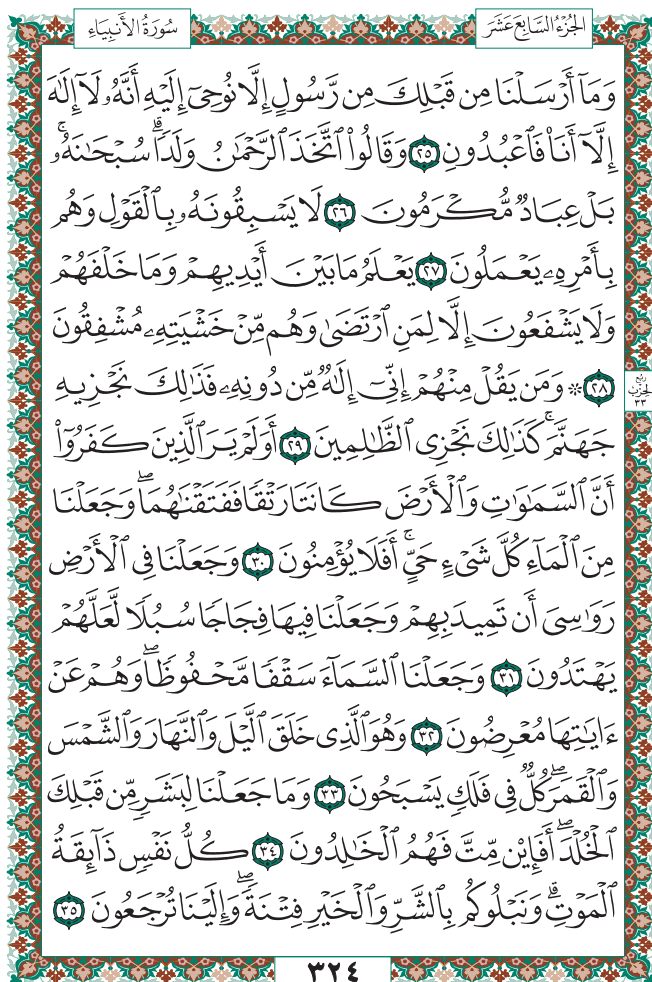 الجُزْءُ السَّابِعَ عَشَرَ
سُورَةُ الأَنبِيَاءِ
وَمَآ أَرْسَلْنَا مِن قَبْلِكَ مِن رَّسُولٍ إِلَّا نُوحِىٓ إِلَيْهِ أَنَّهُۥ لَآ إِلَٰهَ
إِلَّآ أَنَا۠ فَٱعْبُدُونِ ٢٥ وَقَالُوا۟ ٱتَّخَذَ ٱلرَّحْمَٰنُ وَلَدًا ۗ سُبْحَٰنَهُۥ ۚ
بَلْ عِبَادٌ مُّكْرَمُونَ ٢٦ لَا يَسْبِقُونَهُۥ بِٱلْقَوْلِ وَهُم
بِأَمْرِهِۦ يَعْمَلُونَ ٢٧ يَعْلَمُ مَا بَيْنَ أَيْدِيهِمْ وَمَا خَلْفَهُمْ
وَلَا يَشْفَعُونَ إِلَّا لِمَنِ ٱرْتَضَىٰ وَهُم مِّنْ خَشْيَتِهِۦ مُشْفِقُونَ
٢٨ ۞ وَمَن يَقُلْ مِنْهُمْ إِنِّىٓ إِلَٰهٌ مِّن دُونِهِۦ فَذَٰلِكَ نَجْزِيهِ
رُبْعُ
الحِزْبِ
٣٣
جَهَنَّمَ ۚ كَذَٰلِكَ نَجْزِى ٱلظَّٰلِمِينَ ٢٩ أَوَلَمْ يَرَ ٱلَّذِينَ كَفَرُوٓا۟
أَنَّ ٱلسَّمَٰوَٰتِ وَٱلْأَرْضَ كَانَتَا رَتْقًا فَفَتَقْنَٰهُمَا ۖ وَجَعَلْنَا
مِنَ ٱلْمَآءِ كُلَّ شَىْءٍ حَىٍّ ۖ أَفَلَا يُؤْمِنُونَ ٣٠ وَجَعَلْنَا فِى ٱلْأَرْضِ
رَوَٰسِىَ أَن تَمِيدَ بِهِمْ وَجَعَلْنَا فِيهَا فِجَاجًا سُبُلًا لَّعَلَّهُمْ
يَهْتَدُونَ ٣١ وَجَعَلْنَا ٱلسَّمَآءَ سَقْفًا مَّحْفُوظًا ۖ وَهُمْ عَنْ
ءَايَٰتِهَا مُعْرِضُونَ ٣٢ وَهُوَ ٱلَّذِى خَلَقَ ٱلَّيْلَ وَٱلنَّهَارَ وَٱلشَّمْسَ
وَٱلْقَمَرَ ۖ كُلٌّ فِى فَلَكٍ يَسْبَحُونَ ٣٣ وَمَا جَعَلْنَا لِبَشَرٍ مِّن قَبْلِكَ
ٱلْخُلْدَ ۖ أَفَإِي۟ن مِّتَّ فَهُمُ ٱلْخَٰلِدُونَ ٣٤ كُلُّ نَفْسٍ ذَآئِقَةُ
ٱلْمَوْتِ ۗ وَنَبْلُوكُم بِٱلشَّرِّ وَٱلْخَيْرِ فِتْنَةً ۖ وَإِلَيْنَا تُرْجَعُونَ ٣٥
٣٢٤